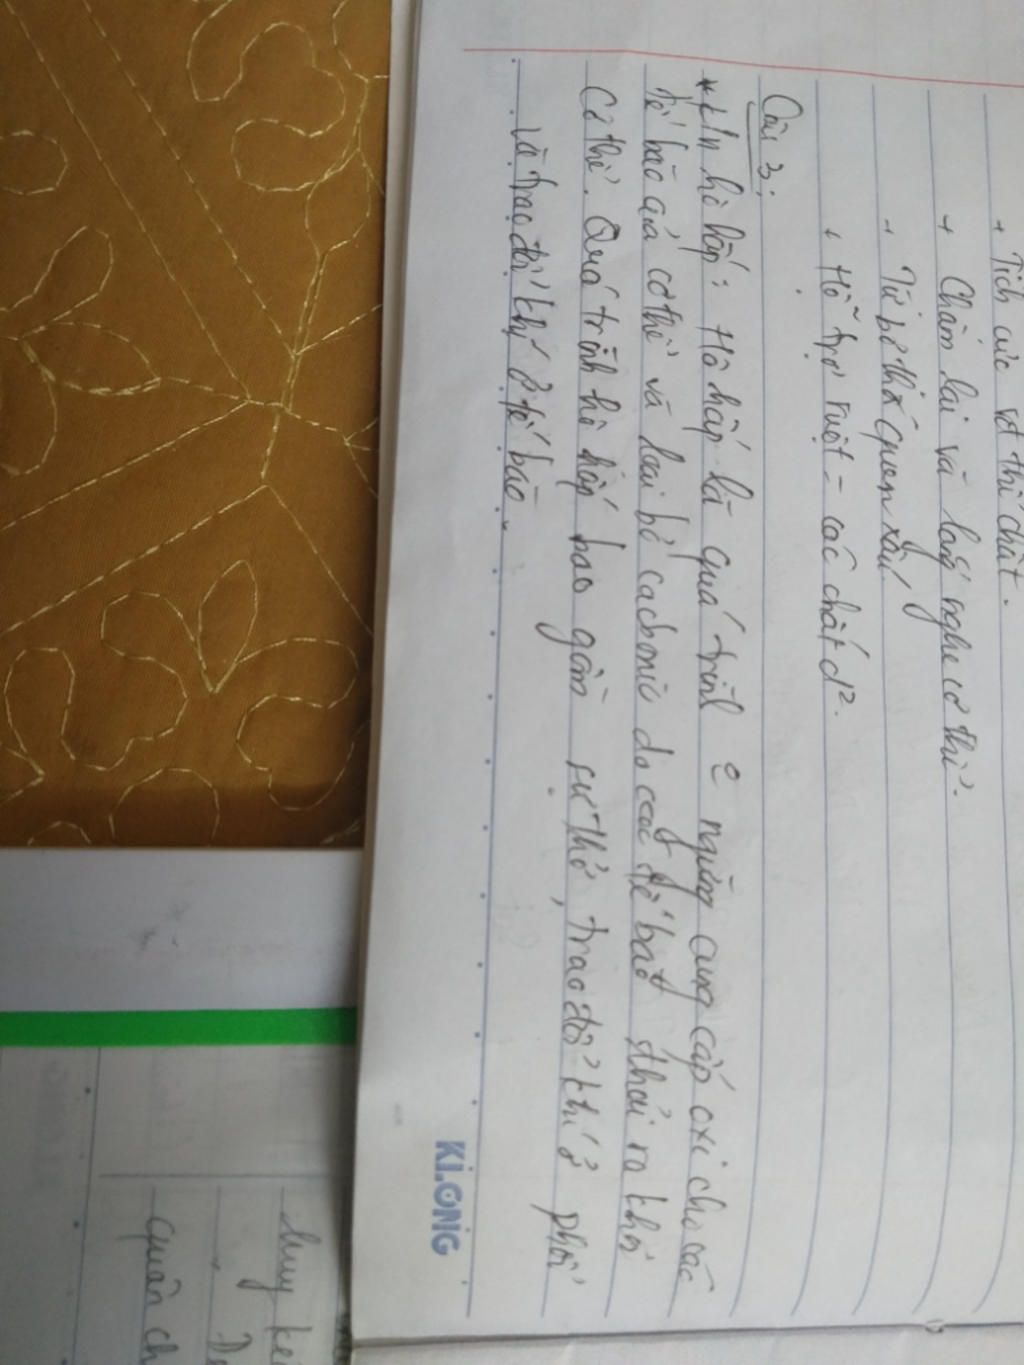 + Tích cực vđ thể chất.
+ Chậm lại và lắng nghe cơ thể.
+ Từ bỏ thói quen xấu
+ Hỗ trợ ruột - các chất d².
Câu 3:
* Đ/n hô hấp: Hô hấp là quá trình ngừng cung cấp oxi cho các
tế bào của cơ thể và loại bỏ cacbonic do các tế bào thải ra khỏi
cơ thể. Quá trình hô hấp bao gồm sự thở, trao đổi khí ở phổi
và trao đổi khí ở tế bào.
KI.ONG
quân ch